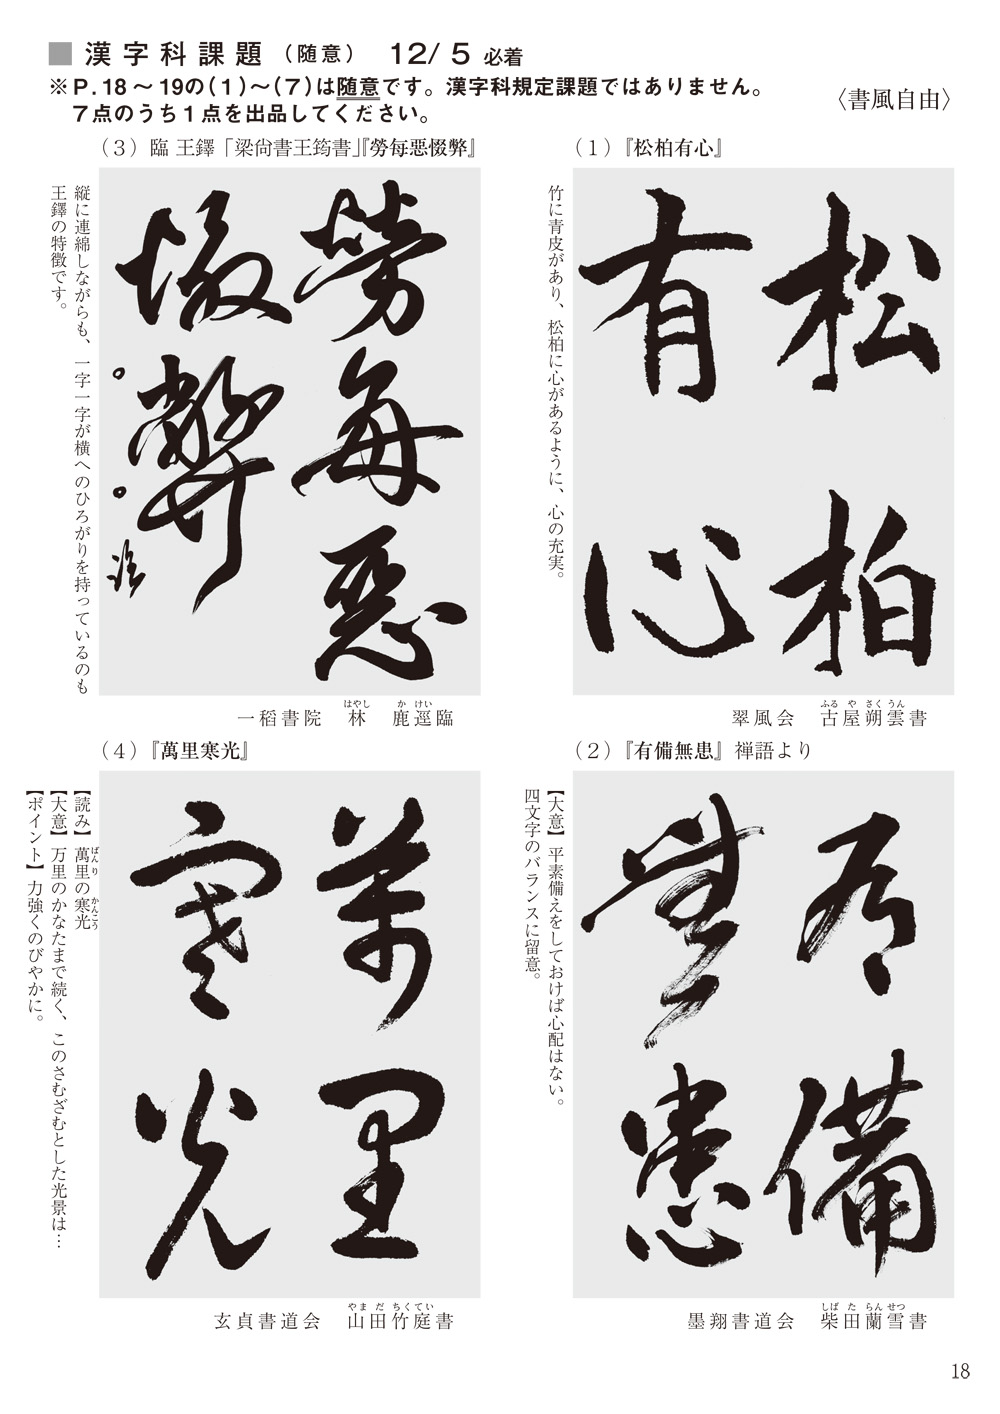 ■漢字科課題（随意） 12/5必着
※P.18〜19の（1）〜（7）は随意です。漢字科規定課題ではありません。
7点のうち1点を出品してください。
〈書風自由〉
（1）『松柏有心』
松柏
有心
竹に青皮があり、松柏に心があるように、心の充実。
翠風会　古屋朔雲書
ふるやさくうん
（2）『有備無患』禅語より
有備
無患
【大意】平素備えをしておけば心配はない。
四文字のバランスに留意。
墨翔書道会　柴田蘭雪書
しばたらんせつ
（3）臨 王鐸「梁尙書王筠書」『勞每悪惙弊』
勞每惡
惙弊
臨
縦に連綿しながらも、一字一字が横へのひろがりを持っているのも
王鐸の特徴です。
一稻書院　林　鹿逕臨
はやし　かけい
（4）『萬里寒光』
萬里
寒光
【読み】萬里の寒光
ばんり　かんこう
【大意】万里のかなたまで続く、このさむざむとした光景は…
【ポイント】力強くのびやかに。
玄貞書道会　山田竹庭書
やまだちくてい
18